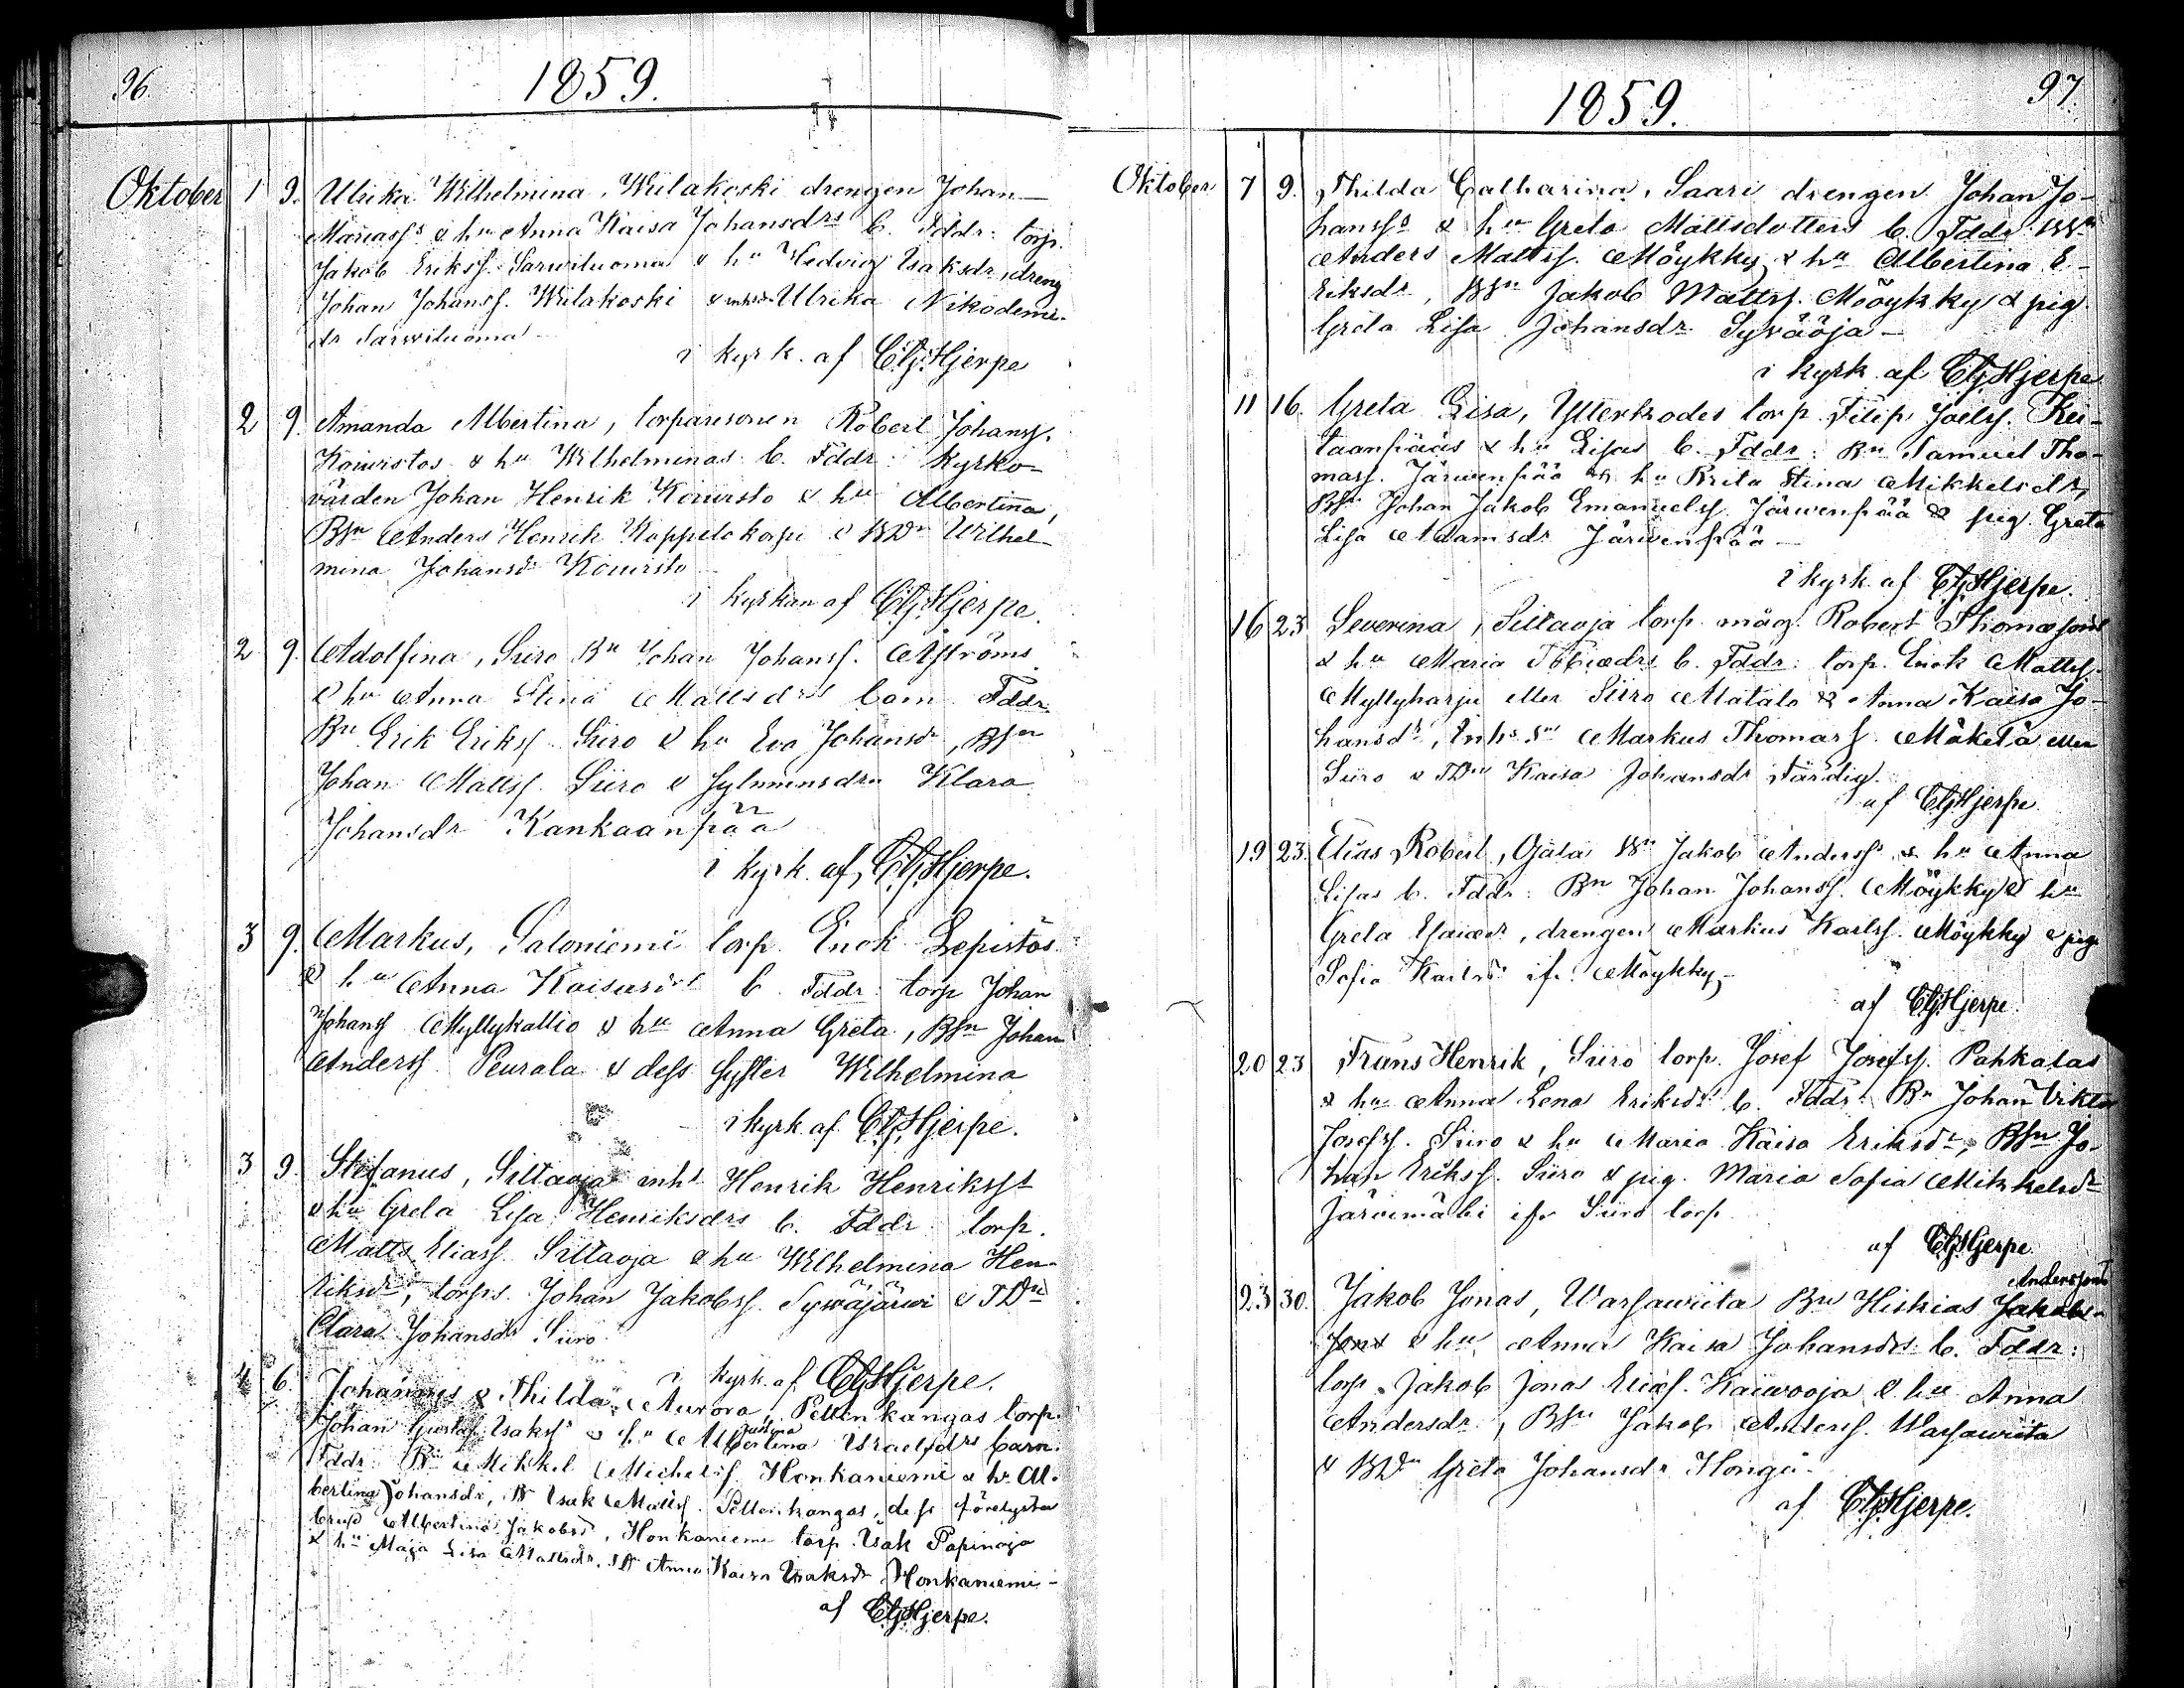 96.
1859.
Oktober 1 9. Ulrika Wilhelmina, Wiilakoski drengen Johan
Mariass & hu Anna Kaisa Johansdrs b. Fddr: torp.
Jakob Erikss. Sarwiluoma & hu Hedvig Isaksdr, dreng
Johan Johanss. Wiilakoski & Ulrika Nikodemi-
dr Sarwiluoma –
i kyrk. af CGHjerpe
2 9. Amanda Albertina, torparesonen Robert Johanss.
Koivistos & hu Wilhelminas b. Fddr: Kyrko-
värden Johan Henrik Koivisto & hu Albertina,
Bsn Anders Henrik Koppelokorpi & BDr Wilhel-
mina Johansdr Koivisto
i kyrkan af CGHjerpe.
2 9. Adolfina, Siiro Bn Johan Johanss. Åströms
& hu Anna Stina Mattsdrs barn. Fddr
Bn Erik Erikss. Siiro & hu Eva Johansdr, Bsn
Johan Mattss. Siiro & Klara
Johansdr Kankaanpää
i kyrk. af, CGHjerpe.
3 9. Markus, Saloniemi torp. Enok Lepistös
& hu Anna b. Fddr: torp Johan
Johanss Myllykallio & hu Anna Greta, Bsn Johan
Anderss. Peurala & dess syster Wilhelmina
i kyrk. af CGHjerpe.
3 9. Stefanus, Siltaoja inhs Henrik Henrikss
& hu Greta Lisa Henriksdrs b. Fddr: torp.
Matts Eliass. Siltaoja & hu Wilhelmina Hen-
riksdr, torps. Johan Jakobss. Sywäjärwi & TDr
Clara Johansdr Siiro
i kyrk. af CGHjerpe.
4 6. Johannes & Thilda Aurora, Pettenkangas torp.
Johan Gustaf Isakss & hu Justina Israelsdrs barn.
Fddr: Bn Mikkel Michelss. Honkaniemi & hu Al-
bertina Johansdr, Isak Mattss. Pettenkangas, dess
Albertina Jakobsd. Honkaniemi torp. Isak Papinoja
& hu Maja Lisa Mattsdr. Anna Kaisa Isaksdr Honkaniemi –
af CGHjerpe.
1859.
97.
Oktober 7 9. Thilda Catharina, Saari drengen Johan Jo-
hanss & hu Greta Mattsdotters b. Fddr:
Anders Mattss. Möykky & hu Albertina E-
riksdr, Jakob Mattss. Möykky & pig.
Greta Lisa Johansdr Syväöja –
i kyrk af CGHjerpe
11 16. Greta Lisa, Ytterkodes torp. Filip Joelss. Kei-
taanpääs & hu Lisas b. Fddr: Bn Samuel Tho-
mass. Järwenpää & hu Brita Stina Mikkelsdr,
Bsn Johan Jakob Emanuelss. Järwenpää & pig. Greta
Lisa Adamsdr Järwenpää –
i kyrk af CGHjerpe.
16 23 Severina, Siltaoja torp. måg. Robert Thomæsons
& hu Maria Tobiædrs b. Fddr: torp. Enok Mattss.
Myllyharju eller Siiro Matala & Anna Kaisa Jo-
hansdr, Inhs Sn Markus Thomass. Mäkelä eller
Siiro & TDr Kaisa Johansdr Färdig.
af CGHjerpe
19 23. Elias Robert, Ojala Jakob Anderss & hu Anna
Lisas b. Fddr: Bn Johan Johanss. Möykky & hu
Greta Esaiædr, drengen Markus Karlss. Möykky & pig
Sofia Karlsdr ifr. Möykky –
af CGHjerpe.
20 23 Frans Henrik, Siiro torp. Josef Josefss. Pahkalas
& hu Anna Lena Eriksdrs b. Fddr: Bn Johan Viktor
Josefss. Siiro & hu Maria Kaisa Eriksdr, Bsn Jo-
han Erikss. Siiro & pig. Maria Sofia Mikkelsdr
Järvimäki ifr Siiro torp.
af CGHjerpe
23 30. Jakob Jonas, Warsawiita Bn Hiskias Jakobs- Anderssons
sons & hu Anna Kaisa Johansdrs b. Fddr:
torp. Jakob Jonas Eliæs. Kaiwooja & hu Anna
Andersdr, Bsn Jakob Anderss. Warsawiita
& BDr Greta Johansdr Hongi –
af CGHjerpe.